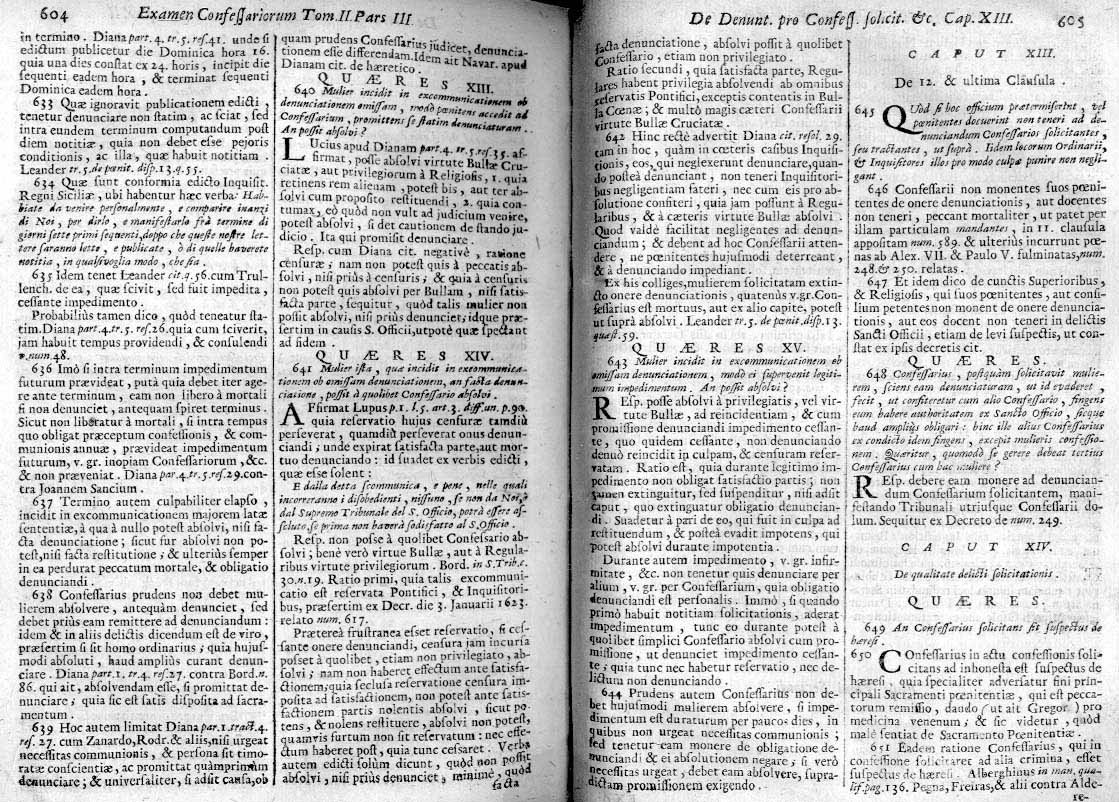 604 Examen Confessariorum Tom. II. Pars III
in termino. Diana part. 4. tr. 5. res. 41. unde si
edictum publicetur die Dominica hora 16.
quia una dies constat ex 24. horis, incipit die
sequenti eadem hora, & terminat sequenti
Dominica eadem hora.
633 Quæ ignoravit publicationem edicti,
tenetur denunciare non statim, ac sciat, sed
intra eundem terminum computandum post
diem notitiæ, quia non debet esse pejoris
conditionis, ac illa, quæ habuit notitiam.
Leander tr. 5. de pœnit. disp. 13. q. 55.
634 Quæ sunt conformia edicto Inquisit.
Regni Siciliæ, ubi habentur hæc verba: Hab-
biate da venire personalmente, e comparire inanzi
di Noi, per dirlo, e manifestarlo frà termine di
giorni sette primi sequenti, doppo che queste nostre let-
tere saranno lette, e publicate, ò di quelle haverete
notitia, in qualsivoglia modo, che sia.
635 Idem tenet Leander cit. q. 56. cum Trul-
lench. de ea, quæ scivit, sed fuit impedita,
cessante impedimento.
Probabiliùs tamen dico, quòd teneatur sta-
tim. Diana part. 4. tr. 5. res. 26. quia cum sciverit,
jam habuit tempus providendi, & consulendi
v. num. 48.
636 Imò si intra terminum impedimentum
futurum prævideat, putà quia debet iter age-
re ante terminum, eam non libero à mortali
si non denunciet, antequam spiret terminus.
Sicut non liberatur à mortali, si intra tempus
quo obligat præceptum confessionis, & com-
munionis annuæ, prævideat impedimentum
futurum, v. gr. inopiam Confessariorum, &c.
& non præveniat. Diana par. 4. tr. 5. res. 29. con-
tra Joannem Sancium.
637 Termino autem culpabiliter elapso,
incidit in excommunicationem majorem latæ
sententiæ, à qua à nullo potest absolvi, nisi fa-
cta denunciatione; sicut fur absolvi non po-
test, nisi facta restitutione; & ulteriùs semper
in ea perdurat peccatum mortale, & obligatio
denunciandi.
638 Confessarius prudens non debet mu-
lierem absolvere, antequàm denunciet, sed
debet priùs eam remittere ad denunciandum:
idem & in aliis delictis dicendum est de viro,
præsertim si sit homo ordinarius; quia hujus-
modi absoluti, haud ampliùs curant denun-
ciare. Diana par. 1. tr. 4. res. 27. contra Bord. n.
86. qui ait, absolvendam esse, si promittat de-
nunciare; quia sic est satis disposita ad sacra-
mentum.
639 Hoc autem limitat Diana par. 1. tract. 4.
res. 27. cum Zanardo, Rodr. & aliis, nisi urgeat
necessitas communionis, & persona sit timo-
ratæ conscientiæ, ac promittat quàmprimùm
denunciare; & universaliter, si adsit causa, ob
quam prudens Confessarius judicet, denuncia-
tionem esse differendam. Idem ait Navar. apud
Dianam cit. de hæretico.
QUÆRES XIII.
640 Mulier incidit in excommunicationem ob
denunciationem omissam, modò pœnitens accedit ad
Confessarium, promittens se statim denunciaturam.
An possit absolvi?
LUcius apud Dianam part. 4. tr. 5. res. 35. af-
firmat, posse absolvi virtute Bullæ Cru-
ciatæ, aut privilegiorum à Religiosis, 1. quia
retinens rem alienam, potest bis, aut ter ab-
solvi cum proposito restituendi, 2. quia con-
tumax, eò quòd non vult ad judicium venire,
potest absolvi, si det cautionem de stando ju-
dicio. Ita qui promisit denunciare.
Resp. cum Diana cit. negativè, ratione
censuræ; nam non potest quis à peccatis ab-
solvi, nisi priùs à censuris; & quia à censuris
non potest quis absolvi per Bullam, nisi satis-
facta parte, sequitur, quòd talis mulier non
possit absolvi, nisi priùs denunciet; idque præ-
sertim in causis S. Officii, utpotè quæ spectant
ad fidem.
QUÆRES XIV.
641 Mulier ista, quæ incidit in excommunica-
tionem ob omissam denunciationem, an facta denun-
ciatione, possit à quolibet Confessario absolvi.
AFfirmat Lupus p. 1. l. 5. art. 3. diff. un. p. 90.
quia reservatio hujus censuræ tamdiù
perseverat, quamdiù perseverat onus denun-
ciandi; unde expirat satisfacta parte, aut mor-
tuo denunciando: id suadet ex verbis edicti,
quæ esse solent:
E dalla detta scommunica, e pene, nelle quali
incorreranno i disobedienti, nissuno, se non da Noi, ò
dal Supremo Tribunale del S. Officio, potrà essere as-
soluto, se prima non haverà sodisfatto al S. Officio.
Resp. non posse à quolibet Confessario ab-
solvi; benè verò virtute Bullæ, aut à Regula-
ribus virtute privilegiorum. Bord. in S. Trib. c.
30. n. 19. Ratio primi, quia talis excommuni-
catio est reservata Pontifici, & Inquisitori-
bus, præsertim ex Decr. die 3. Januarii 1623.
relato num. 617.
Prætereà frustranea esset reservatio, si ces-
sante onere denunciandi, censura jam incursa
posset à quolibet, etiam non privilegiato, ab-
solvi; nam non haberet effectum ante satisfa-
ctionem; quia seclusa reservatione censura im-
posita ad satisfactionem, non potest ante satis-
factionem partis nolentis absolvi, sicut po-
tens, & nolens restituere, absolvi non potest,
quamvis furtum non sit reservatum: nec effe-
ctum haberet post, quia tunc cessaret. Verba
autem edicti solùm dicunt, quòd non possit
absolvi, nisi priùs denunciet, minimè, quòd
facta
De Denunt. pro Confess. solicit. &c. Cap. XIII. 605
facta denunciatione, absolvi possit à quolibet
Confessario, etiam non privilegiato.
Ratio secundi, quia satisfacta parte, Regu-
lares habent privilegia absolvendi ab omnibus
reservatis Pontifici, exceptis contentis in Bul-
la Cœnæ; & multò magis cæteri Confessarii
virtute Bullæ Cruciatæ.
642 Hinc rectè advertit Diana cit. resol. 29.
tam in hoc, quàm in cœteris casibus Inquisi-
tionis, eos, qui neglexerunt denunciare, quan-
do posteà denunciant, non teneri Inquisitori-
bus negligentiam fateri, nec cum eis pro ab-
solutione confiteri, quia jam possunt à Regu-
laribus, & à cæteris virtute Bullæ absolvi.
Quod valdè facilitat negligentes ad denun-
ciandum; & debent ad hoc Confessarii atten-
dere, ne pœnitentes hujusmodi deterreant,
& à denunciando impediant.
Ex his colliges, mulierem solicitatam extin-
cto onere denunciationis, quatenùs v. gr. Con-
fessarius est mortuus, aut ex alio capite, potest
ut suprà absolvi. Leander tr. 5. de pœnit. disp. 13.
quest. 59.
QUÆRES XV.
643 Mulier incidit in excommunicationem ob
omissam denunciationem, modò ei supervenit legiti-
mum impedimentum. An possit absolvi?
REsp. posse absolvi à privilegiatis, vel vir-
tute Bullæ, ad reincidentiam, & cum
promissione denunciandi impedimento cessan-
te, quo quidem cessante, non denunciando
denuò reincidit in culpam, & censuram reser-
vatam. Ratio est, quia durante legitimo im-
pedimento non obligat satisfactio partis; non
tamen extinguitur, sed suspenditur, nisi adsit
caput, quo extinguatur obligatio denuncian-
di. Suadetur à pari de eo, qui fuit in culpa ad
restituendum, & posteà evadit impotens, qui
potest absolvi durante impotentia.
Durante autem impedimento, v. gr. infir-
mitate, &c. non tenetur quis denunciare per
alium, v. gr. per Confessarium, quia obligatio
denunciandi est personalis. Immò, si quando
primò habuit notitiam solicitationis, aderat
impedimentum, tunc eo durante potest à
quolibet simplici Confessario absolvi cum pro-
missione, ut denunciet impedimento cessan-
te; quia tunc nec habetur reservatio, nec de-
lictum non denunciando.
644 Prudens autem Confessarius non de-
bet hujusmodi mulierem absolvere, si impe-
dimentum est duraturum per paucos dies, in
quibus non urgeat necessitas communionis;
sed tenetur eam monere de obligatione de-
nunciandi & ei absolutionem negare; si verò
necessitas urgeat, debet eam absolvere, supra-
dictam promissionem exigendo.
CAPUT XIII.
De 12. & ultima Clausula.
645 QUòd si hoc officium prætermiserint, vel
pœnitentes docuerint non teneri ad de-
nunciandum Confessarios solicitantes,
seu tractantes, ut suprà. Iidem locorum Ordinarii,
& Inquisitores illos pro modo culpæ punire non negli-
gant.
646 Confessarii non monentes suos pœni-
tentes de onere denunciationis, aut docentes
non teneri, peccant mortaliter, ut patet per
illam particulam mandantes, in 11. clausula
appositam num. 589. & ulteriùs incurrunt pœ-
nas ab Alex. VII. & Paulo V. fulminatas, num.
248. & 250. relatas.
647 Et idem dico de cunctis Superioribus,
& Religiosis, qui suos pœnitentes, aut consi-
lium petentes non monent de onere denuncia-
tionis, aut eos docent non teneri in delictis
Sancti Officii, etiam de levi suspectis, ut con-
stat ex ipsis decretis cit.
QUÆRES.
648 Confessarius, postquàm solicitavit mulie-
rem, sciens eam denunciaturam, ut id evaderet,
fecit, ut confiteretur cum alio Confessario, fingens
eum habere authoritatem ex Sancto Officio, sicque
haud ampliùs obligari: hinc ille alius Confessarius
ex condicto idem fingens, excepit mulieris confessio-
nem. Quæritur, quomodo se gerere debeat tertius
Confessarius cum hac muliere?
REsp. debere eam monere ad denuncian-
dum Confessarium solicitantem, mani-
festando Tribunali utriusque Confessarii do-
lum. Sequitur ex Decreto de num. 249.
CAPUT XIV.
De qualitate delicti solicitationis.
QUÆRES.
649 An Confessarius solicitans sit suspectus de
hæresi.
650 COnfessarius in actu confessionis soli-
citans ad inhonesta est suspectus de
hæresi, quia specialiter adversatur fini prin-
cipali Sacramenti pœnitentiæ, qui est pecca-
torum remissio, dando (ut ait Gregor.) pro
medicina venenum; & sic videtur, quòd
malè sentiat de Sacramento Pœnitentiæ.
651 Eadem ratione Confessarius, qui in
confessione solicitaret ad alia crimina, esset
suspectus de hæresi. Alberghinus in man. qua-
lif. pag. 136. Pegna, Freiras, & alii contra Alde-
re-